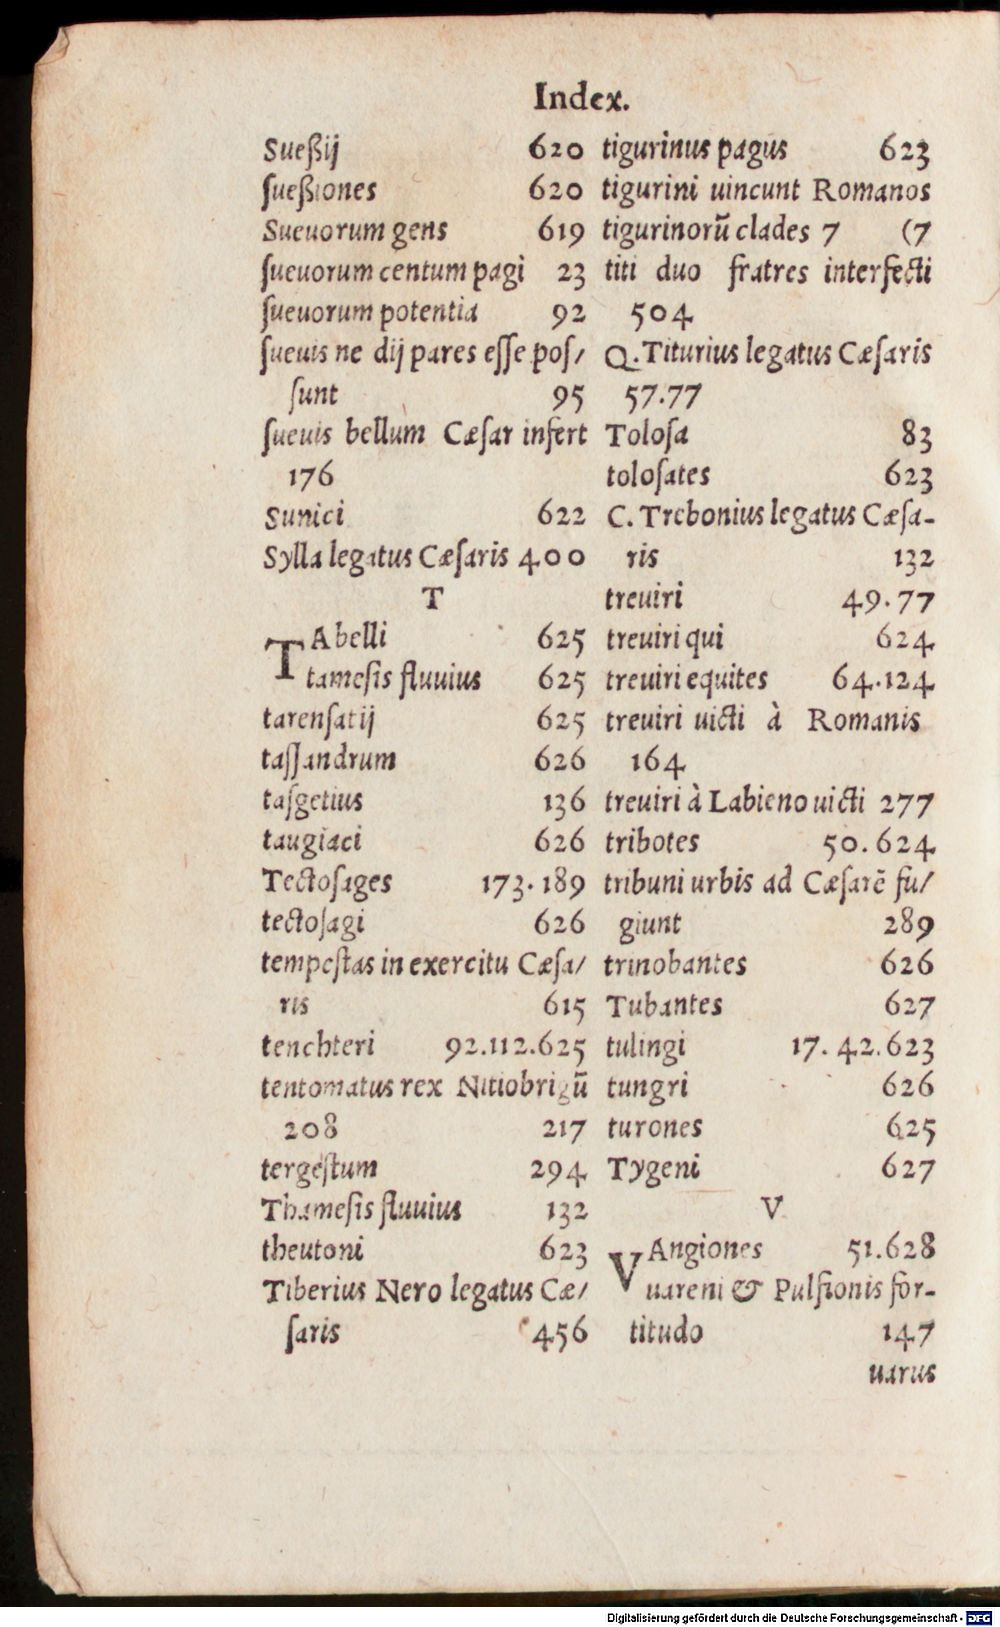 Index.
Sueßij 620
ſueßiones 620
Sueuorum gens 619
ſueuorum centum pagi 23
ſueuorum potentia 92
ſueuis ne dij pares eſſe poſ/
ſunt 95
ſueuis bellum Cæſar infert
176
Sunici 622
Sylla legatus Cæſaris 400
T
TAbelli 625
tameſis fluuius 625
tarenſatij 625
taſſandrum 626
taſgetius 136
taugiaci 626
Tectoſages 173.189
tectoſagi 626
tempeſtas in exercitu Cæſa/
ris 615
tenchteri 92.112.625
tentomatus rex Nitiobrigū
208 217
tergeſtum 294
Thameſis fluuius 132
theutoni 623
Tiberius Nero legatus Cæ/
ſaris 456
tigurinus pagus 623
tigurini uincunt Romanos
tigurinorū clades 7 (7
titi duo fratres interfecti
504
Q. Titurius legatus Cæſaris
57.77
Toloſa 83
toloſates 623
C. Trebonius legatus Cæſa-
ris 132
treuiri 49.77
treuiri qui 624
treuiri equites 64.124
treuiri uicti à Romanis
164
treuiri à Labieno uicti 277
tribotes 50.624
tribuni urbis ad Cæſarē fu/
giunt 289
trinobantes 626
Tubantes 627
tulingi 17.42.623
tungri 626
turones 625
Tygeni 627
V
VAngiones 51.628
uareni & Pulſionis for-
titudo 147
uarus
Digitalisierung gefördert durch die Deutsche Forschungsgemeinschaft - DFG